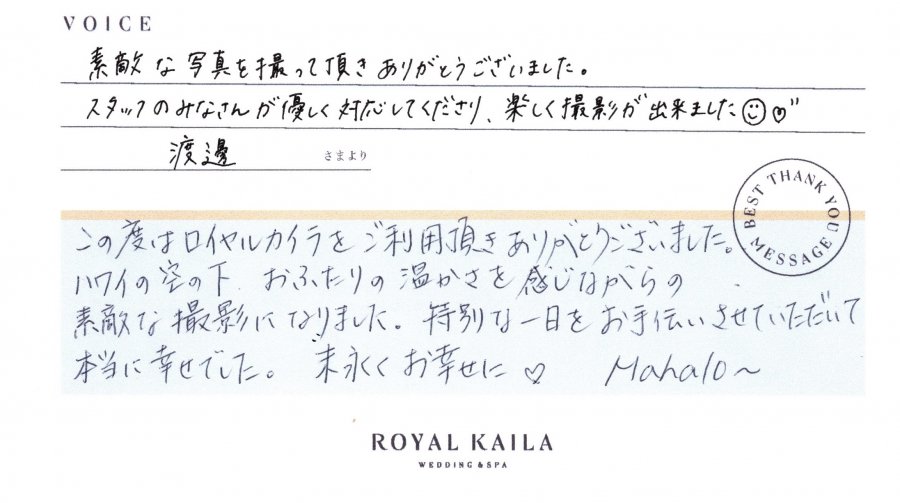 VOICE
素敵な写真を撮って頂きありがとうございました。
スタッフのみなさんが優しく対応してくださり、楽しく撮影が出来ました☺♡"
渡邊 さまより
BEST THANK YOU MESSAGE
この度はロイヤルカイラをご利用頂きありがとうございました。
ハワイの空の下、おふたりの温かさを感じながらの
素敵な撮影になりました。特別な一日をお手伝いさせていただいて
本当に幸せでした。末永くお幸せに♡ Mahalo~
ROYAL KAILA
WEDDING & SPA